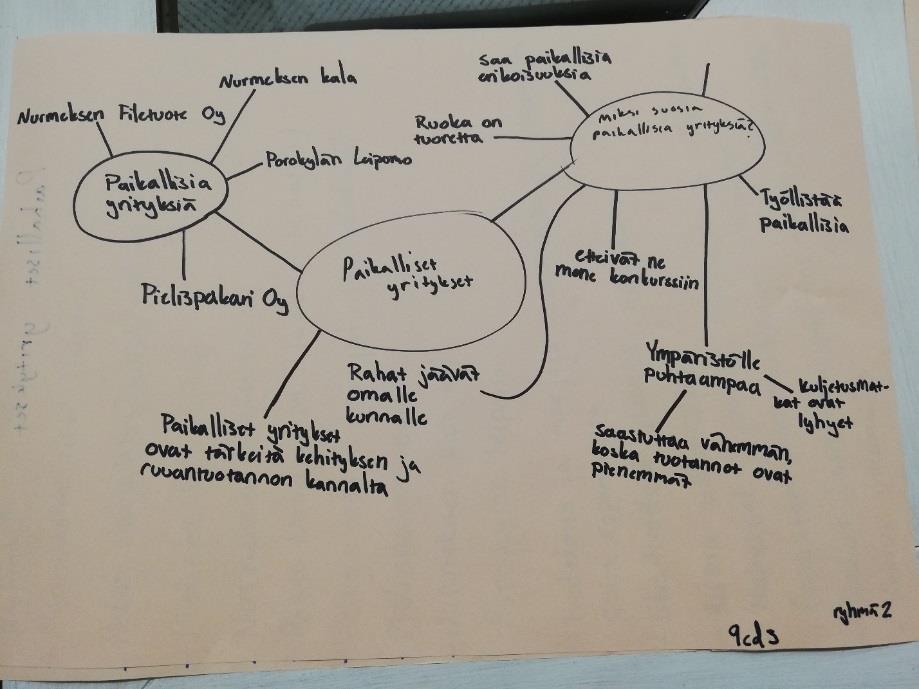 Nurmeksen kala
Nurmeksen Filetuote Oy
Porokylän Leipomo
Paikallisia
yrityksiä
Pielispakari Oy
Paikalliset
yritykset
Paikalliset yritykset
ovat tärkeitä kehityksen ja
ruuantuotannon kannalta
saa paikallisia
erikoisuuksia
Ruoka on
tuoretta
miksi suosia
paikallisia yrityksiä?
Työllistää
paikallisia
etteivät ne
mene konkurssiin
Rahat jäävät
omalle
kunnalle
Ympäristölle
puhtaampaa
kuljetusmat-
kat ovat
lyhyet
saastuttaa vähemmän,
koska tuotannot ovat
pienemmät
Paikalliset yritykset
ryhmä 2
9cd3